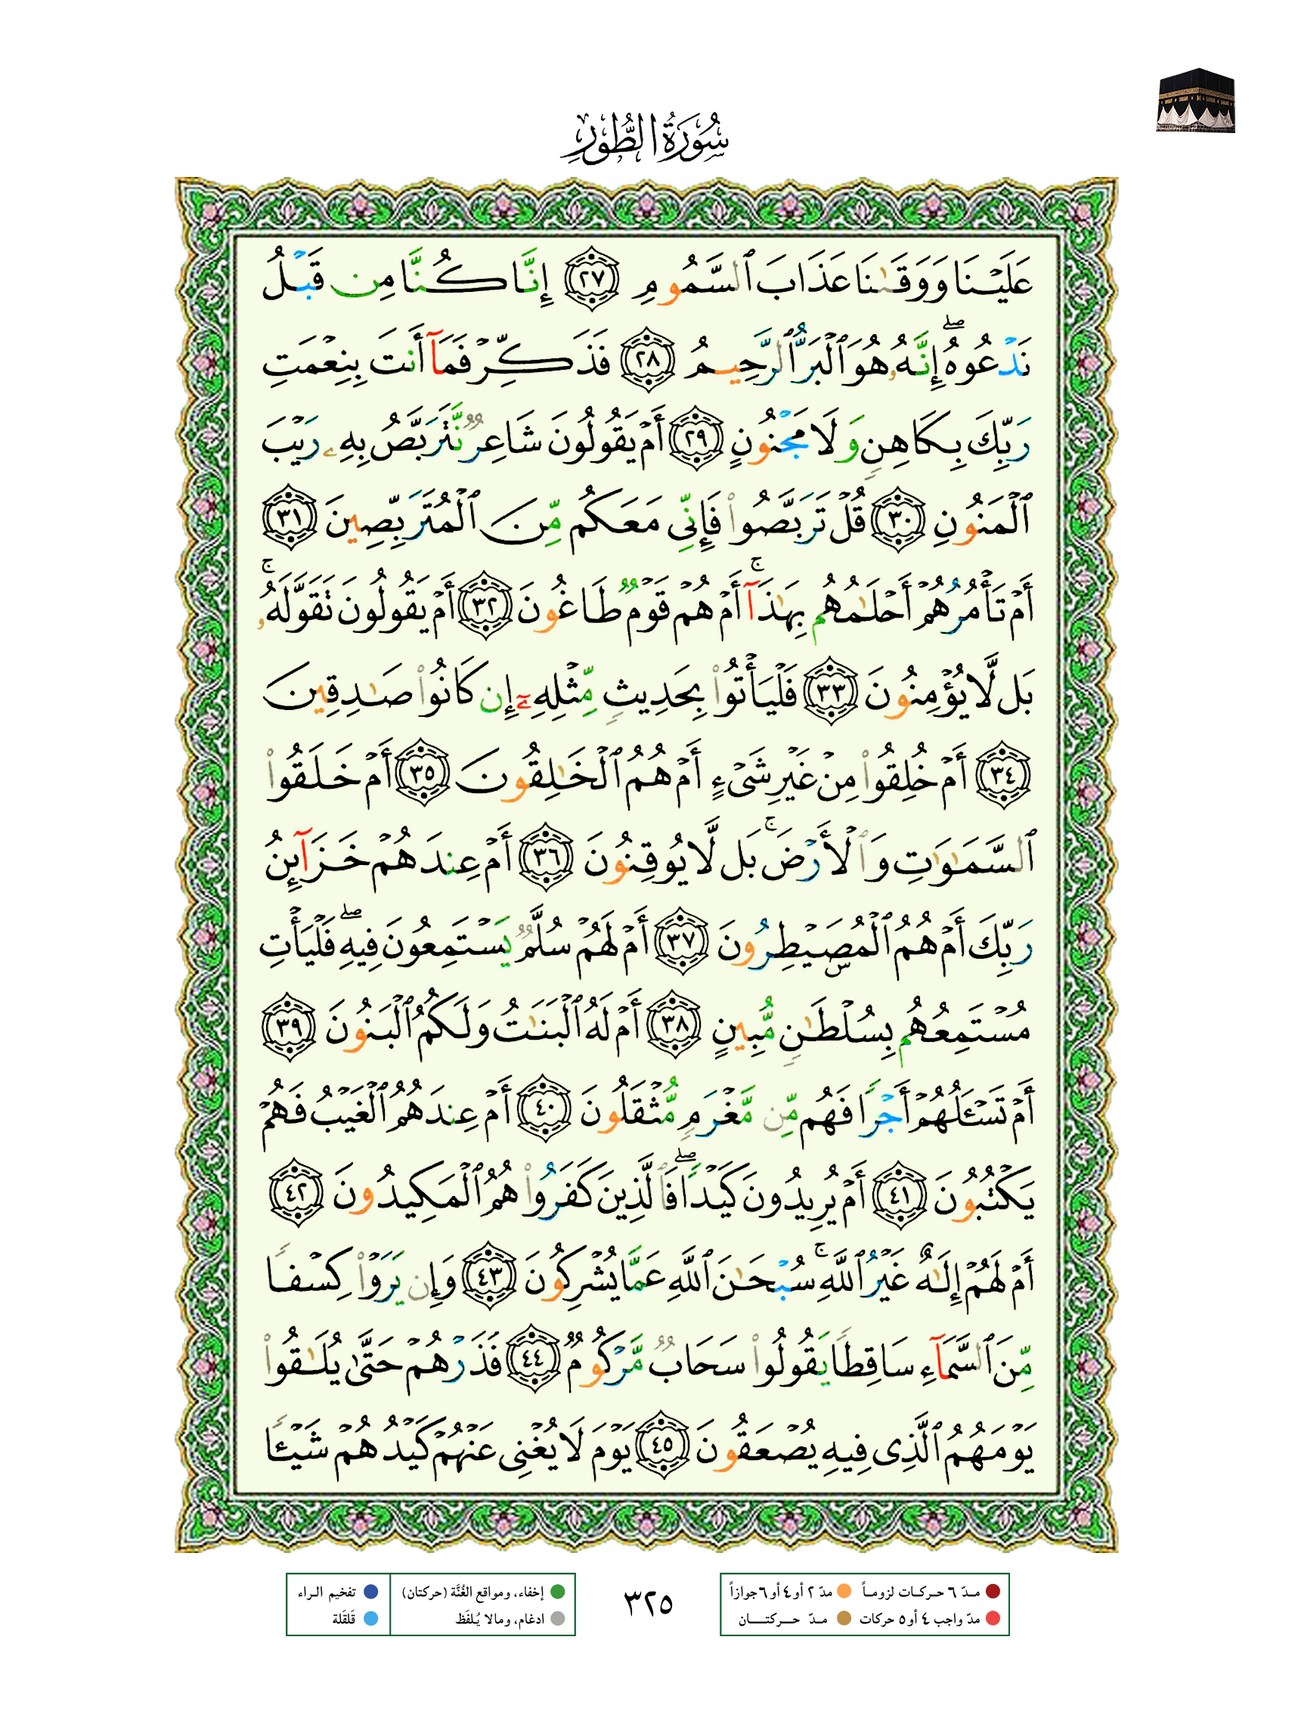 سُورَةُ الطُّورِ
عَلَيْنَا وَوَقَىٰنَا عَذَابَ ٱلسَّمُومِ ٢٧ إِنَّا كُنَّا مِن قَبْلُ
نَدْعُوهُ ۖ إِنَّهُۥ هُوَ ٱلْبَرُّ ٱلرَّحِيمُ ٢٨ فَذَكِّرْ فَمَآ أَنتَ بِنِعْمَتِ
رَبِّكَ بِكَاهِنٍ وَلَا مَجْنُونٍ ٢٩ أَمْ يَقُولُونَ شَاعِرٌ نَّتَرَبَّصُ بِهِۦ رَيْبَ
ٱلْمَنُونِ ٣٠ قُلْ تَرَبَّصُوا۟ فَإِنِّى مَعَكُم مِّنَ ٱلْمُتَرَبِّصِينَ ٣١
أَمْ تَأْمُرُهُمْ أَحْلَٰمُهُم بِهَٰذَآ ۚ أَمْ هُمْ قَوْمٌ طَاغُونَ ٣٢ أَمْ يَقُولُونَ تَقَوَّلَهُۥ ۚ
بَل لَّا يُؤْمِنُونَ ٣٣ فَلْيَأْتُوا۟ بِحَدِيثٍ مِّثْلِهِۦٓ إِن كَانُوا۟ صَٰدِقِينَ
٣٤ أَمْ خُلِقُوا۟ مِنْ غَيْرِ شَىْءٍ أَمْ هُمُ ٱلْخَٰلِقُونَ ٣٥ أَمْ خَلَقُوا۟
ٱلسَّمَٰوَٰتِ وَٱلْأَرْضَ ۚ بَل لَّا يُوقِنُونَ ٣٦ أَمْ عِندَهُمْ خَزَآئِنُ
رَبِّكَ أَمْ هُمُ ٱلْمُصَۣيْطِرُونَ ٣٧ أَمْ لَهُمْ سُلَّمٌ يَسْتَمِعُونَ فِيهِ ۖ فَلْيَأْتِ
مُسْتَمِعُهُم بِسُلْطَٰنٍ مُّبِينٍ ٣٨ أَمْ لَهُ ٱلْبَنَٰتُ وَلَكُمُ ٱلْبَنُونَ ٣٩
أَمْ تَسْـَٔلُهُمْ أَجْرًا فَهُم مِّن مَّغْرَمٍ مُّثْقَلُونَ ٤٠ أَمْ عِندَهُمُ ٱلْغَيْبُ فَهُمْ
يَكْتُبُونَ ٤١ أَمْ يُرِيدُونَ كَيْدًا ۖ فَٱلَّذِينَ كَفَرُوا۟ هُمُ ٱلْمَكِيدُونَ ٤٢
أَمْ لَهُمْ إِلَٰهٌ غَيْرُ ٱللَّهِ ۚ سُبْحَٰنَ ٱللَّهِ عَمَّا يُشْرِكُونَ ٤٣ وَإِن يَرَوْا۟ كِسْفًا
مِّنَ ٱلسَّمَآءِ سَاقِطًا يَقُولُوا۟ سَحَابٌ مَّرْكُومٌ ٤٤ فَذَرْهُمْ حَتَّىٰ يُلَٰقُوا۟
يَوْمَهُمُ ٱلَّذِى فِيهِ يُصْعَقُونَ ٤٥ يَوْمَ لَا يُغْنِى عَنْهُمْ كَيْدُهُمْ شَيْـًٔا
مدّ ٦ حركات لزوماً مدّ ٢ أو ٤ أو ٦ جوازاً
مدّ واجب ٤ أو ٥ حركات مدّ حركتان
٣٢٥
إخفاء، ومواقع الغُنَّة (حركتان) تفخيم الراء
ادغام، ومالا يُلفَظ قلقلة